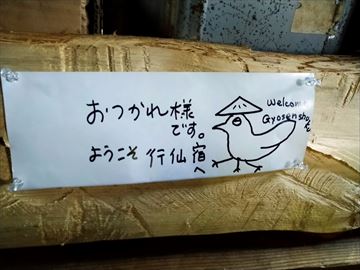 おつかれ様
です。
ようこそ 行仙宿
へ
Welcome